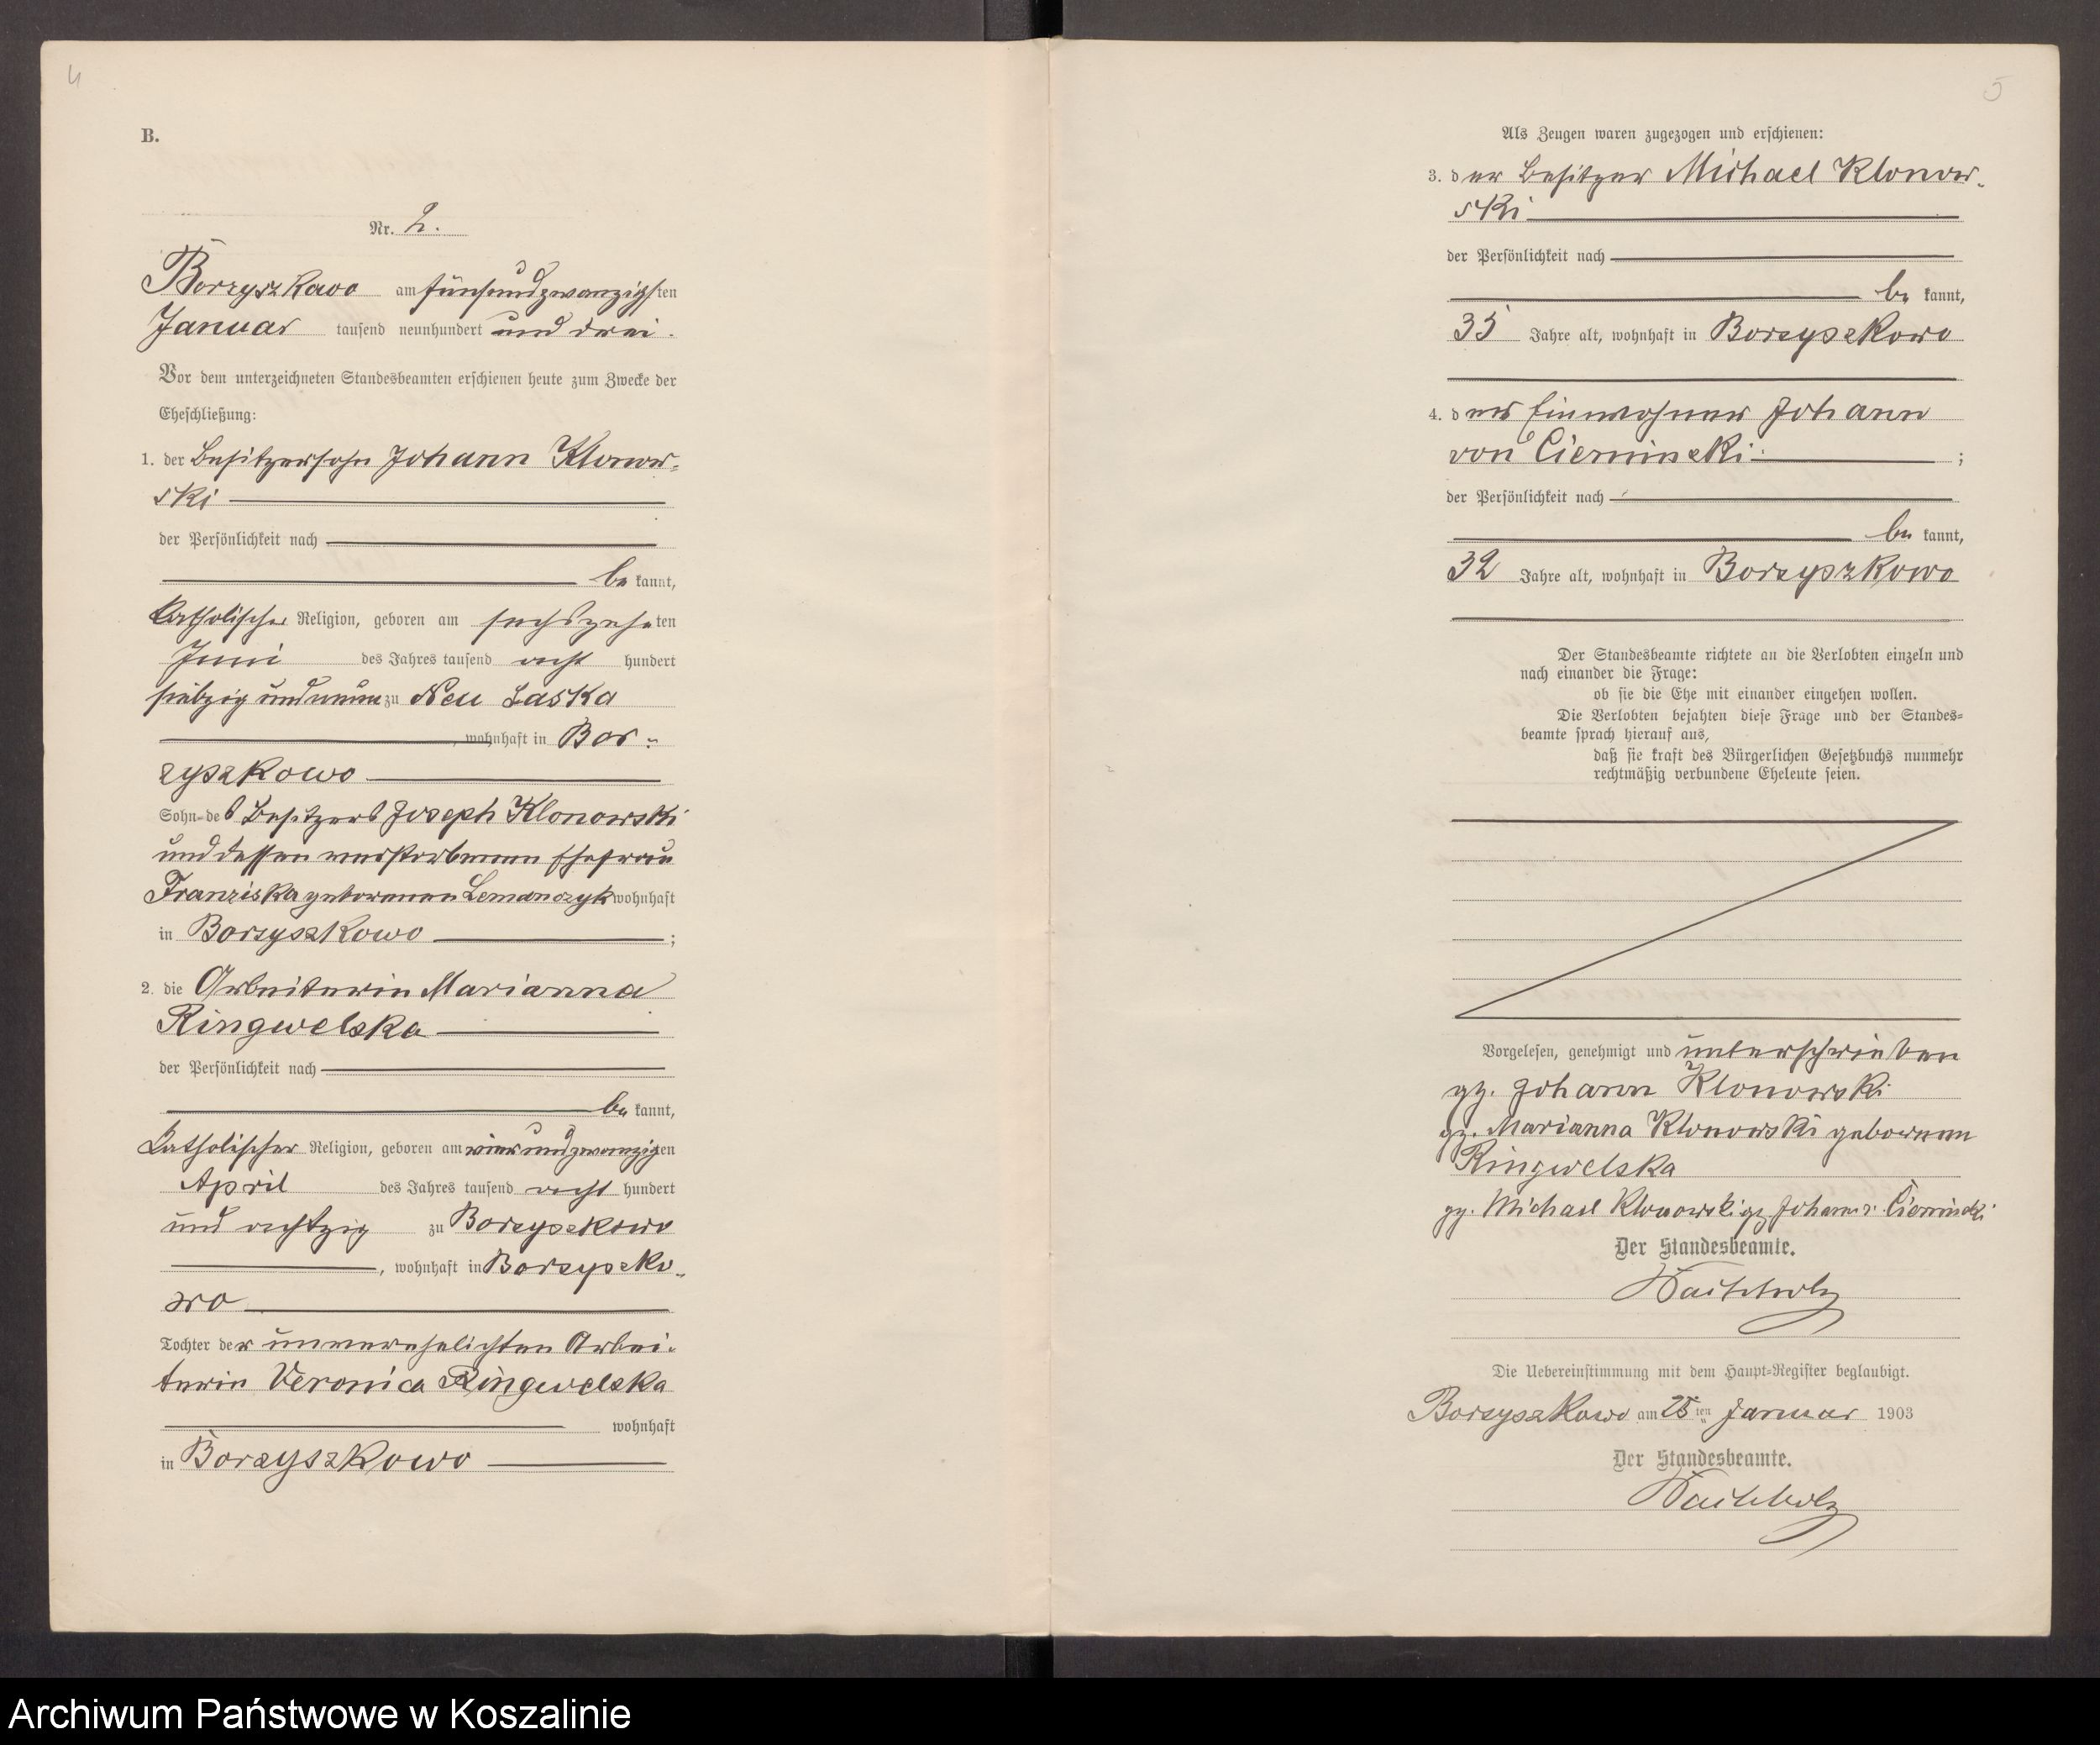 4
B.
Nr. 2.
Borzyszkowo am fünfundzwanzigsten
Januar tausend neunhundert und drei.
Vor dem unterzeichneten Standesbeamten erschienen heute zum Zwecke der
Eheschließung:
1. der Besitzersohn Johann Klonow-
ski
der Persönlichkeit nach
be kannt,
katholischer Religion, geboren am sechszehnten
Juni des Jahres tausend acht hundert
siebzig und neun zu Neu Laska
, wohnhaft in Bor-
zyszkowo
Sohn des Besitzers Joseph Klonowski
und dessen verstorbenen Ehefrau
Franziska geborenen Lemanczyk wohnhaft
in Borzyszkowo ;
2. die Arbeiterin Marianna
Ringwelska
der Persönlichkeit nach
be kannt,
katholischer Religion, geboren am vierundzwanzigen
April des Jahres tausend acht hundert
und achtzig zu Borzyszkowo
, wohnhaft in Borzyszko-
wo
Tochter der unverehelichten Arbei-
terin Veronica Ringwelska
wohnhaft
in Borzyszkowo
5
Als Zeugen waren zugezogen und erschienen:
3. der Besitzer Michael Klonow-
ski
der Persönlichkeit nach
be kannt,
35 Jahre alt, wohnhaft in Borzyszkowo
4. der Einwohner Johann
von Cieminski ;
der Persönlichkeit nach
be kannt,
32 Jahre alt, wohnhaft in Borzyszkowo
Der Standesbeamte richtete an die Verlobten einzeln und
nach einander die Frage:
ob sie die Ehe mit einander eingehen wollen.
Die Verlobten bejahten diese Frage und der Standes-
beamte sprach hierauf aus,
daß sie kraft des Bürgerlichen Gesetzbuchs nunmehr
rechtmäßig verbundene Eheleute seien.
Vorgelesen, genehmigt und unterschrieben
gz. Johann Klonowski
gz. Marianna Klonowski geborenen
Ringwelska
gz. Michael Klonowski gz Johann v. Cieminski
Der Standesbeamte.
Die Uebereinstimmung mit dem Haupt-Register beglaubigt.
Borzyszkowo am 25 ten Januar 1903
Der Standesbeamte.
Archiwum Państwowe w Koszalinie